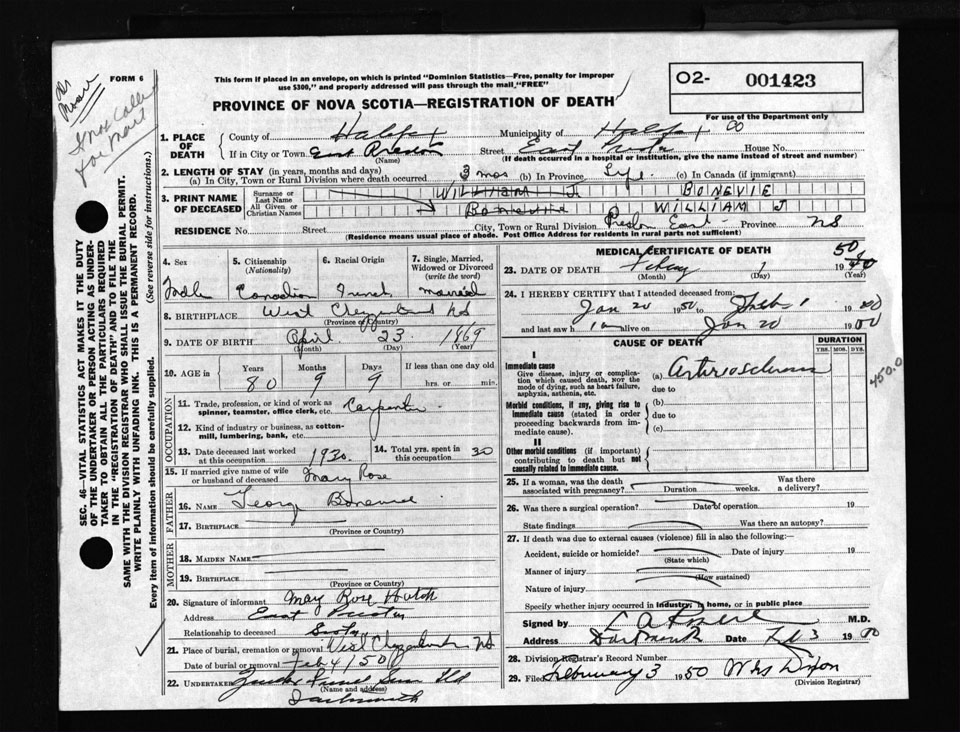 FORM 6
This form if placed in an envelope, on which is printed "Dominion Statistics—Free, penalty for improper
use $300," and properly addressed will pass through the mail, "FREE"
PROVINCE OF NOVA SCOTIA—REGISTRATION OF DEATH
O2- 001423
For use of the Department only
1. PLACE OF DEATH
County of Halifax Municipality of Halifax
If in City or Town East Preston Street East Preston House No.
(Name) (If death occurred in a hospital or institution, give the name instead of street and number)
2. LENGTH OF STAY (in years, months and days)
(a) In City, Town or Rural Division where death occurred 3 mos (b) In Province Life (c) In Canada (if immigrant)
3. PRINT NAME OF DECEASED
Surname or Last Name WILLIAM J BONEVIE
All Given or Christian Names Bonevie WILLIAM J
RESIDENCE No. Street City, Town or Rural Division Preston East Province NS
(Residence means usual place of abode. Post Office Address for residents in rural parts not sufficient)
4. Sex Male
5. Citizenship (Nationality) Canadian
6. Racial Origin French
7. Single, Married, Widowed or Divorced (write the word) married
8. BIRTHPLACE West NS
(Province or Country)
9. DATE OF BIRTH April 23 1869
(Month) (Day) (Year)
10. AGE in Years Months Days If less than one day old
80 9 9 hrs. or min.
OCCUPATION
11. Trade, profession, or kind of work as
spinner, teamster, office clerk, etc. Carpenter
12. Kind of industry or business, as cotton-
mill, lumbering, bank, etc.
13. Date deceased last worked at this occupation 1930
14. Total yrs. spent in this occupation 30
15. If married give name of wife
or husband of deceased Mary Rose
FATHER
16. NAME George
17. BIRTHPLACE
MOTHER
18. MAIDEN NAME
19. BIRTHPLACE
(Province or Country)
20. Signature of informant May Rose
Address East Preston
Relationship to deceased
21. Place of burial, cremation or removal West NS
Date of burial or removal Feb 4/50
22. UNDERTAKER Ltd
(Name and address)
Dartmouth
MEDICAL CERTIFICATE OF DEATH
23. DATE OF DEATH 1 1950
(Month) (Day) (Year)
24. I HEREBY CERTIFY that I attended deceased from:
Jan 20 1950 to 1 19
and last saw h alive on Jan 20 19
CAUSE OF DEATH
DURATION
YRS. MOS. DYS.
I
Immediate cause
Give disease, injury or complica-
tion which caused death, NOT the
mode of dying, such as heart failure,
asphyxia, asthenia, etc.
(a) Arteriosclerosis
due to
Morbid conditions, if any, giving rise to
immediate cause (stated in order
proceeding backwards from im-
mediate cause).
(b)
due to
(c)
II
Other morbid conditions (if important)
contributing to death but not
causally related to immediate cause.
450.0
25. If a woman, was the death associated with pregnancy? Duration weeks. Was there a delivery?
26. Was there a surgical operation? Date of operation 19
State findings Was there an autopsy?
27. If death was due to external causes (violence) fill in also the following:
Accident, suicide or homicide? Date of injury 19
(State which)
Manner of injury
(How sustained)
Nature of injury
Specify whether injury occurred in Industry, in home, or in public place
Signed by M.D.
Address Dartmouth Date Feb 3 19
28. Division Registrar's Record Number
29. Filed February 3 1950 Dixon
(Division Registrar)
SEC. 46—VITAL STATISTICS ACT MAKES IT THE DUTY
OF THE UNDERTAKER OR PERSON ACTING AS UNDER-
TAKER TO OBTAIN ALL THE PARTICULARS REQUIRED
IN THE "REGISTRATION OF DEATH" AND TO FILE THE
SAME WITH THE DIVISION REGISTRAR WHO SHALL ISSUE THE BURIAL PERMIT.
WRITE PLAINLY WITH UNFADING INK. THIS IS A PERMANENT RECORD.
Every item of information should be carefully supplied. (See reverse side for instructions.)